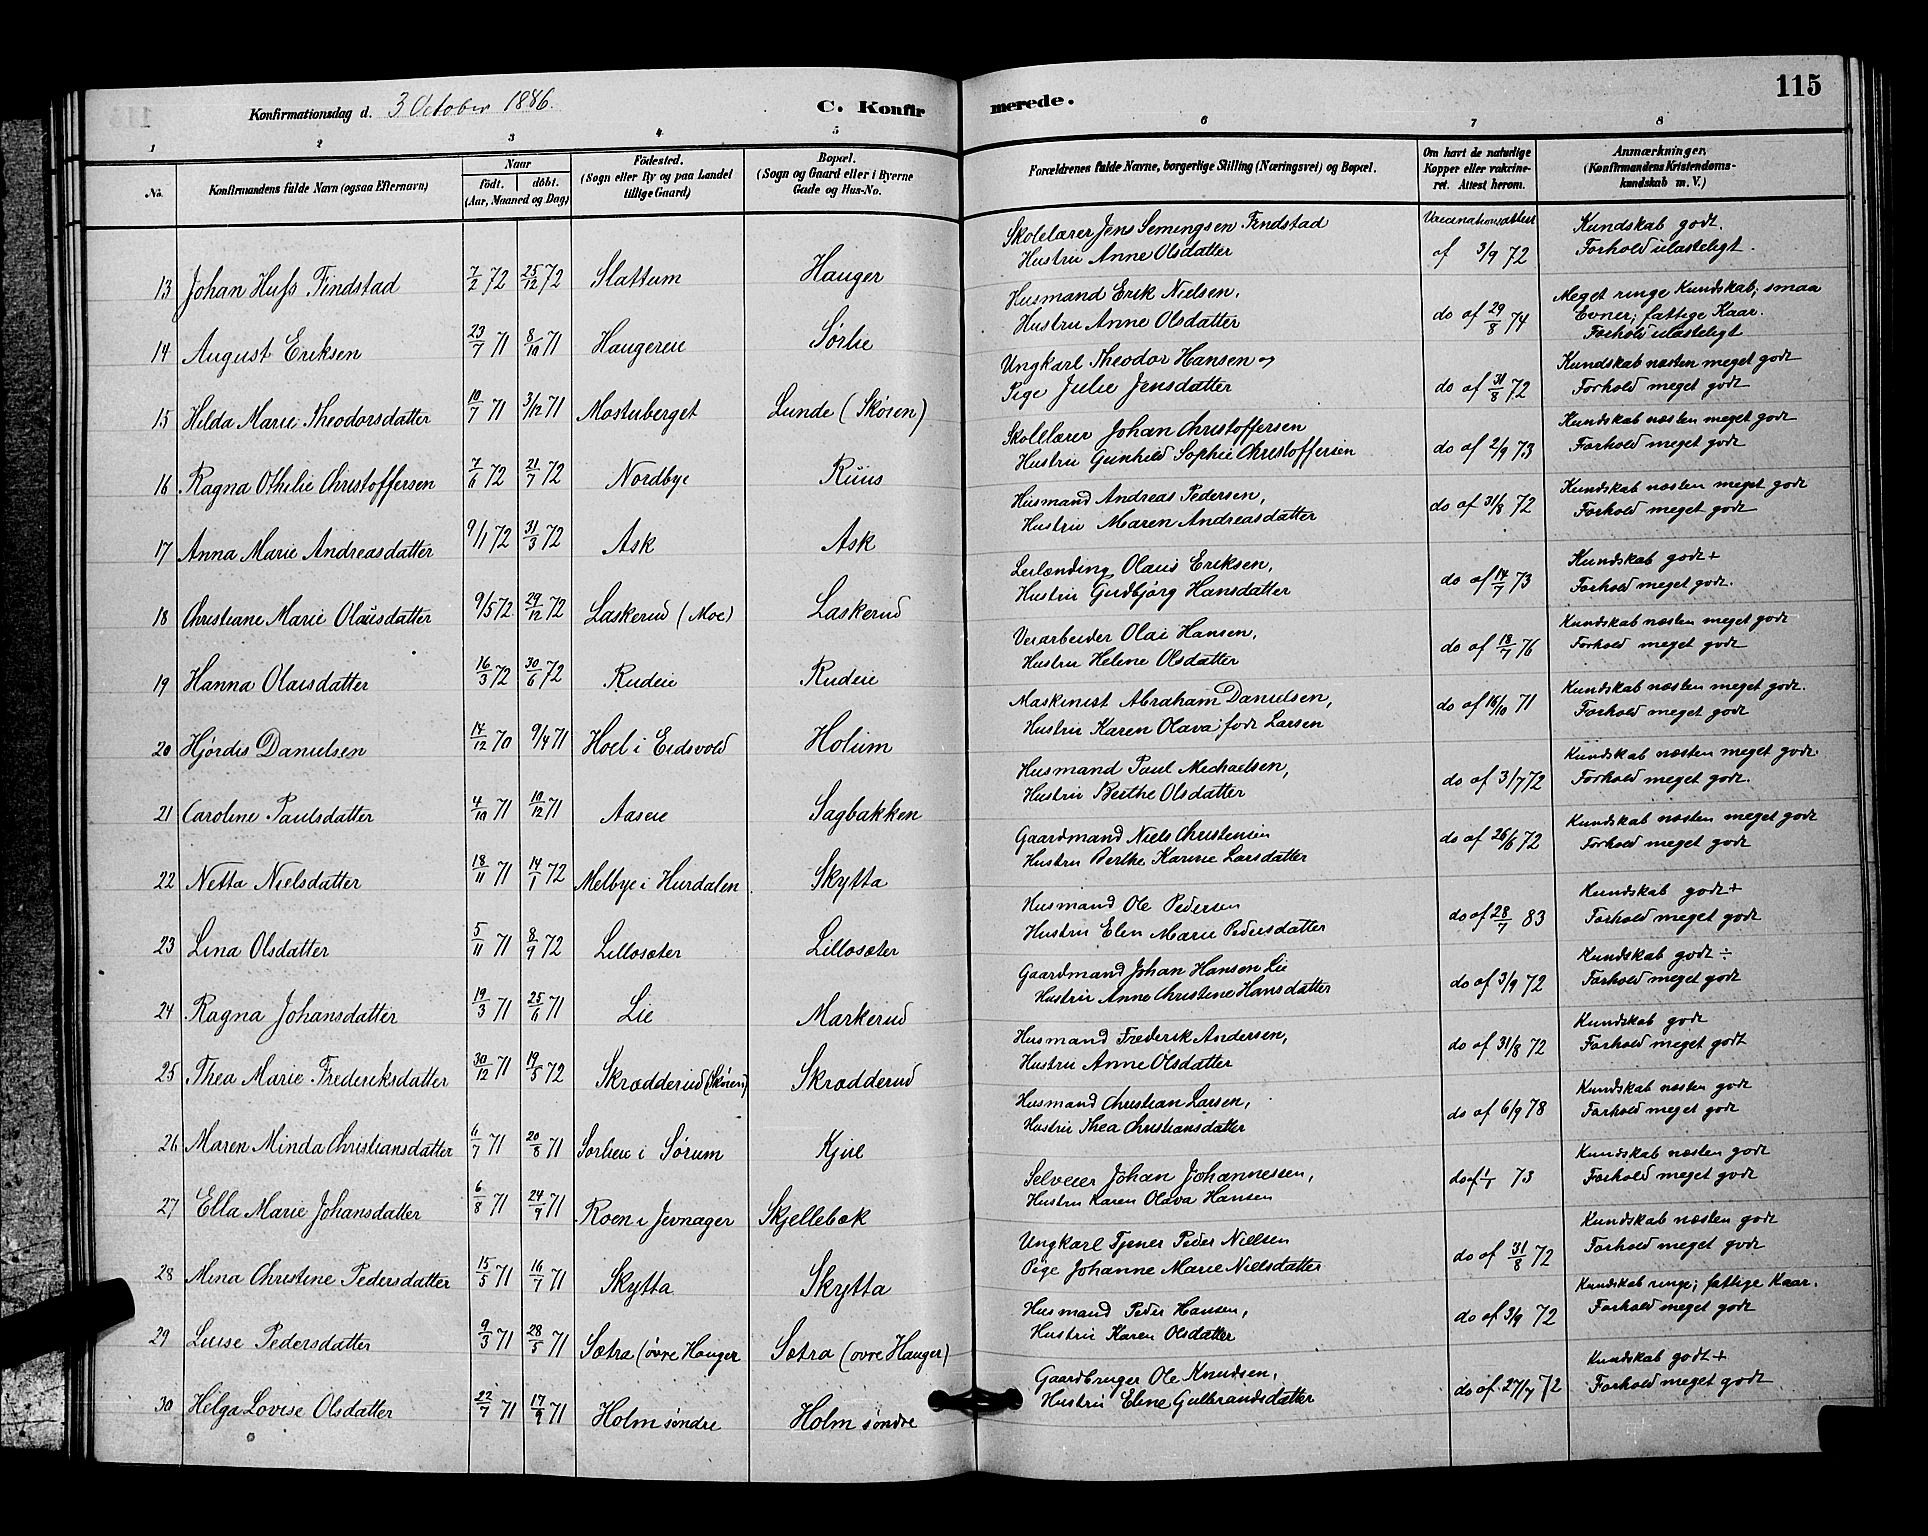 115
Konfirmationsdag d. 3 October 1886.
C. Konfirmerede.
1 2 3 4 5 6 7 8
No. Konfirmandens fulde Navn (ogsaa Efternavn) Naar födt. döbt. (Aar, Maaned og Dag) Födested. (Sogn eller By og paa Landet tillige Gaard) Bopæl. (Sogn og Gaard eller i Byerne Gade og Hus-No. Forældrenes fulde Navne, borgerlige Stilling (Næringsvei) og Bopæl. Om havt de naturlige Kopper eller vaccineret. Attest herom. Anmærkninger. (Konfirmandens Kristendomskundskab m. V.)
13 Johan Huss Findstad 7/2 72 25/12 72 Slattum Hauger Skolelærer Jens Semingsen Findstad
Hustru Anne Olsdatter Vaccinationsattest af 3/9 72 Kundskab godt.
Forhold ulasteligt.
14 August Eriksen 23/7 71 8/10 71 Haugereie Sørlie Husmand Erik Nielsen,
Hustru Anne Olsdatter do af 29/8 74 Meget ringe Kundskab; smaa
Evner; fattige Kaar.
Forhold ulasteligt
15 Helda Marie Theodorsdatter 10/7 71 3/12 71 Mostuberget Lunde (Skøien) Ungkarl Theodor Hansen og
Pige Julie Jensdatter do af 31/8 72 Kundskab næsten meget godt
Forhold meget godt
16 Ragna Othilie Christoffersen 7/6 72 21/7 72 Nordbye Ruus Skolelærer Johan Christoffersen
Hustru Gunhild Sophie Christoffersen do af 2/9 73 Kundskab næsten meget godt
Forhold meget godt
17 Anna Marie Andreasdatter 9/1 72 31/3 72 Ask Ask Husmand Andreas Pedersen,
Hustru Maren Andreasdatter do af 31/8 72 Kundskab næsten meget godt
Forhold meget godt
18 Christiane Marie Olausdatter 9/5 72 29/12 72 Laskerud (Moe) Laskerud Leilænding Olaus Eriksen,
Hustru Gudbjørg Hansdatter do af 14/7 73 Kundskab godt +
Forhold meget godt.
19 Hanna Olaisdatter 16/3 72 30/6 72 Rudeie Rudeie Veiarbeider Olai Hansen,
Hustru Helene Olsdatter do af 18/7 76 Kundskab næsten meget godt
Forhold meget godt
20 Hjørdis Danielsen 14/12 70 9/4 71 Hoel i Eidsvold Holum Maskinist Abraham Danielsen,
Hustru Karen Olava, født Larsen do af 16/10 71 Kundskab næsten meget godt.
Forhold meget godt
21 Caroline Paulsdatter 4/10 71 10/12 71 Aaseie Sagbakken Husmand Paul Michaelsen,
Hustru Berthe Olsdatter do af 3/7 72 Kundskab næsten meget godt.
Forhold meget godt.
22 Netta Nielsdatter 18/11 71 14/1 72 Melbye i Hurdalen Skytta Gaardmand Niels Christensen
Hustru Berthe Karine Larsdatter do af 26/6 72 Kundskab næsten meget godt
Forhold meget godt
23 Lina Olsdatter 5/11 71 8/9 72 Lillosæter Lillosæter Husmand Ole Pedersen
Hustru Elen Marie Pedersdatter do af 28/7 83 Kundskab godt +
Forhold meget godt
24 Ragna Johansdatter 19/3 71 25/6 71 Lie Markerud Gaardmand Johan Hansen Lie
Hustru Anne Christine Hansdatter do af 3/9 72 Kundskab godt ÷
Forhold meget godt
25 Thea Marie Frederiksdatter 30/12 71 19/5 72 Skrædderud (Skøien) Skrædderud Husmand Frederik Andersen,
Hustru Anne Olsdatter do af 31/8 72 Kundskab godt
Forhold meget godt
26 Maren Minda Christiansdatter 6/7 71 20/8 71 Sørlieie i Sørum Kjúl Husmand Christian Larsen,
Hustru Thea Christiansdatter do af 6/9 78 Kundskab næsten godt
Forhold meget godt
27 Ella Marie Johansdatter 6/8 71 24/9 71 Roen i Jevnager Skjellebæk Selveier Johan Johannesen,
Hustru Karen Olava Hansen do af 1/1 73 Kundskab næsten godt
Forhold meget godt
28 Mina Christine Pedersdatter 15/5 71 16/7 71 Skytta Skytta Ungkarl Tjener Peder Nielsen
Pige Johanne Marie Nielsdatter do af 31/8 72 Kundskab næsten godt
Forhold meget godt
29 Luise Pedersdatter 9/3 71 28/5 71 Sætra (øvre Hauger Sætra (øvre Hauger) Husmand Peder Hansen,
Hustru Karen Olsdatter do af 3/9 72 Kundskab ringe; fattige Kaar.
Forhold meget godt
30 Helga Lovise Olsdatter 22/7 71 17/9 71 Holm søndre Holm søndre Gaardbruger Ole Knudsen,
Hustru Eline Gulbrandsdatter do af 27/7 72 Kundskab godt +
Forhold meget godt